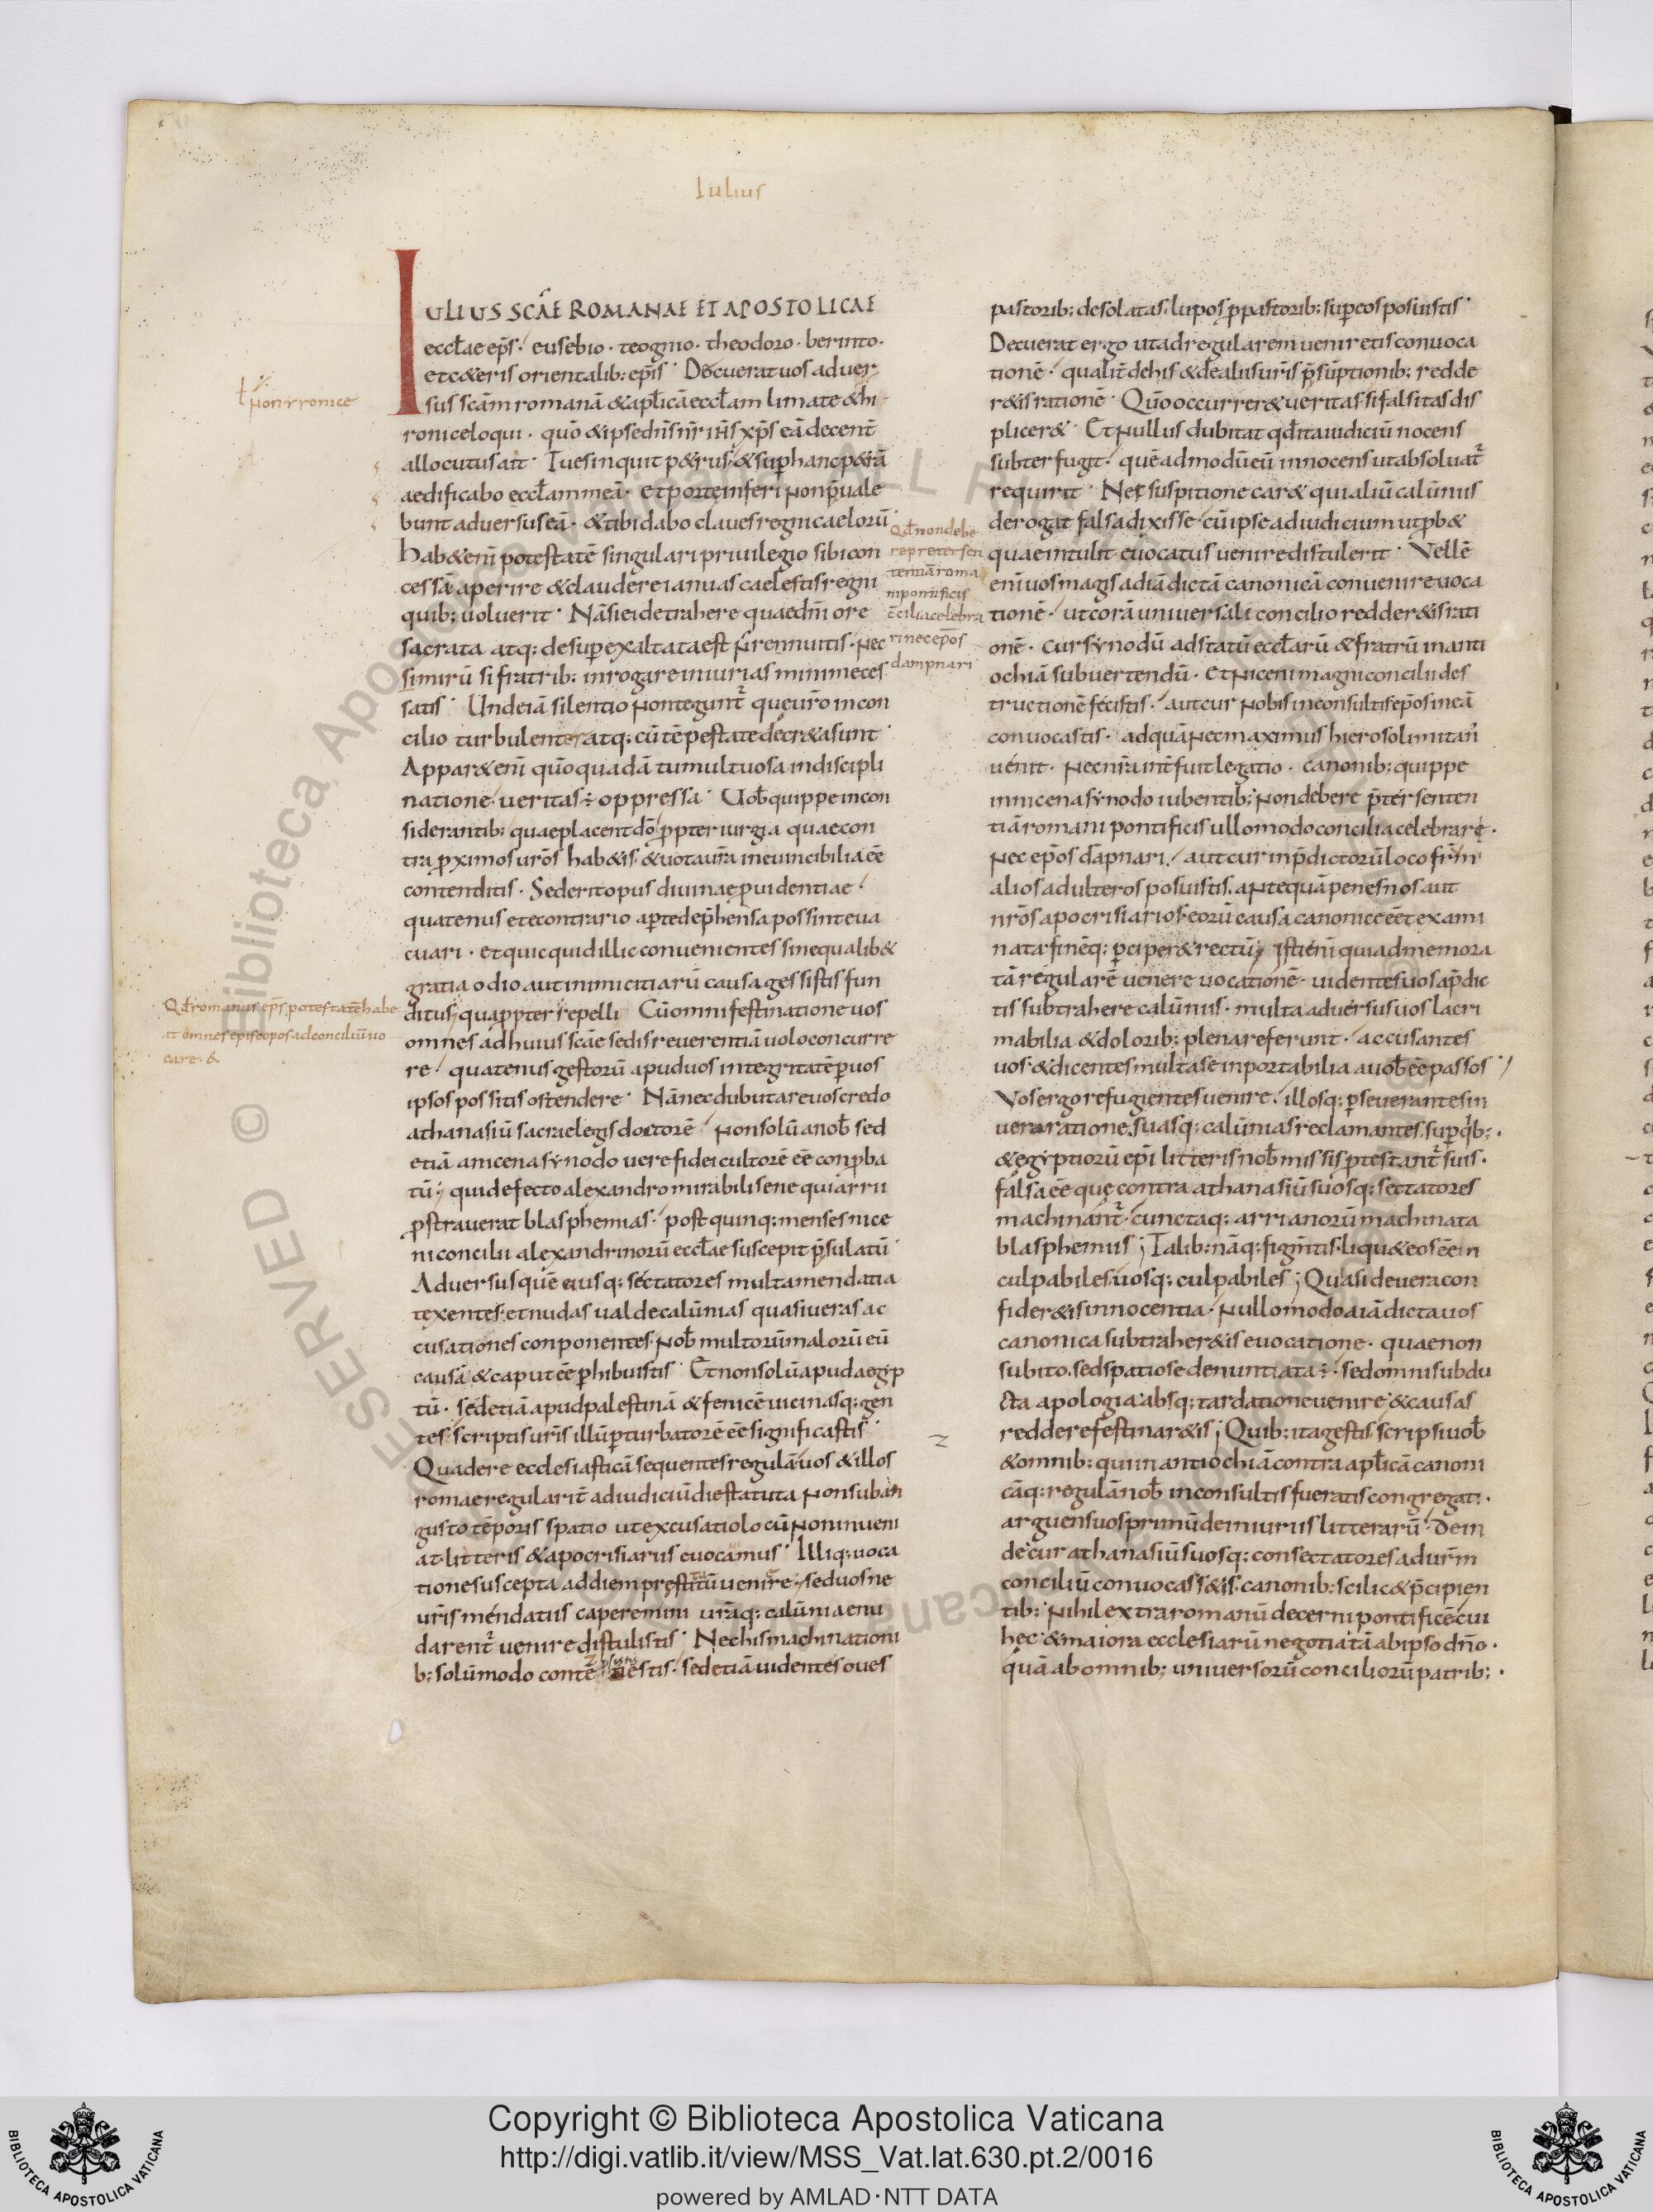 Iulius
IULIUS SCAE ROMANAE ET APOSTOLICAE
eccłae ep̄s. eusebio. teogno. theodoro. berinto.
et c&eris orientalib: ep̄is. Decuerat uos aduer
sus scām romanā & apłicā eccłam limate & hi
roniceloqui. quō & ipse dn̄s nr̄ ih̄s xp̄s eā decent̄
allocutus ait. Tu es inquit p&rus. & sup hanc p&rā
aedificabo eccłam meā. et porte inferi non p̄uale
bunt aduersus eā. & tibi dabo claues regni caelorū.
hab& eni potestatē singulari priuilegio sibi con
cessā aperire & claudere ianuas caelestis regni
quib: uoluerit. Nā si ei detrahere quae dn̄i ore
sacrata atq: desuper exaltata est n̄ rennuitis. nec
si mirū si fratrib: inrogare iniurias minime ces
satis. Unde iā silentio non tegunt̄ que uro in con
cilio turbulenter atq: cū tēpestate decr&a sunt.
Appar& eni quō quadā tumultuosa indiscipli
natione. ueritas ÷ oppressa. Uob̄ quippe incon
siderantib: quae placent dō ppter iurgia quae con
tra pximos uros hab&is. & uota ura inconuincibilia eē
contenditis. Sed erit opus diuinae puidentiae.
quatenus et e contrario aperte dep̄hensa possint eua
cuari. et quicquid illic conuenientes sine qualib&
gratia odio aut inimicitiarū causa gessistis fun
ditus; quapropter repelli Cū omni festinatione uos
omnes ad huius scāe sedis reuerentiā uolo concurre
re. quatenus gestorū apud uos integritatē p uos
ipsos possitis ostendere. Nā nec dubitare uos credo
athanasiū sacrae legis doctorē non solū a nob̄ sed
etiā a nicena synodo uere fidei cultorē eē conpba
tū; qui defecto alexandro mirabili sene qui arrii
pstrauerat blasphemias. post quinq: menses nice
ni concilii alexandrinorū eccłae suscepit p̄sulatū.
Aduersus quē eiusq: sectatores multa mendatia
texentes. et nudas ualde calūnias quasi ueras ac
cusationes conponentes. nob̄ multorū malorū eū
causā & caput eē phibuistis. Et non solū apud aegyp
tū. sed etiā apud palestinā & fenicē uicinasq: gen
tes. scriptis uris illū pturbatorē eē significastis.
Qua de re ecclesiasticā sequentes regulā uos & illos
romae regularit̄ ad iudiciū die statuta non sub an
gusto tēporis spatio ut excusatio locū non inueni
at. litteris & apocrisiariis euocamus. Illiq: uoca
tione suscepta ad diem prestitutū uenire. sed uos ne
uris mendatiis caperemini uraq: calūnia enu
darent̄ uenire distulistis. Nec his machinationi
b: solūmodo conte estis. sed etiā uidentes oues
pastorib: desolatas. lupos p pastorib: super eos posuistis.
Decuerat ergo ut ad regularem ueniretis conuoca
tionē. qualit̄ de his & de aliis uris p̄sūptionib: redde
r&is rationē. Quō occurrer& ueritas. si falsitas dis
plicer&. Et nullus dubitat qđ ita iudiciū nocens
subterfugit. quēadmodū eū innocens ut absoluat̄
requirit. Nec suspitione car& qui aliū calūniis
derogat falsa dixisse. cū ipse ad iudicium ut pb&
quae intulit euocatus uenire distulerit. Vellē
eni uos magis ad iādictā canonicā conuenire uoca
tionē. ut corā uniuersali concilio redder&is rati
onē. cur synodū ad statū eccłarū & fratrū in anti
ochiā subuertendū. et niceni magni concilii des
tructionē fecistis. aut cur nobis inconsultis ep̄os in eā
conuocastis. ad quā nec maximus hierosolimitan̄
uenit. nec nr̄a int̄fuit legatio. canonib: quippe
in nicena synodo iubentib: non debere p̄ter senten
tiā romani pontificis ullo modo concilia celebrare.
nec ep̄os dāpnari. aut cur in p̄dictorū loco frm̄
alios adulteros posuistis. antequā penes nos aut
nros apocrisiarios. eorū causa canonice eēt exami
nata. finēq: perciper& rectū; Isti eni qui ad memora
tā regularē uenere uocationē. uidentes uos a p̄dic
tis subtrahere calūniis. multa aduersus uos lacri
mabilia & dolorib: plena referunt. accusantes
uos & dicentes multa se inportabilia a uob̄ eē passos.
Vos ergo refugientes uenire. illosq: perseuerantes in
uera ratione. suasq: calūnias reclamantes. sup qb:.
& egyptiorū ep̄i litteris nob̄ missis ptestant̄ suis.
falsa eē que contra athanasiū suosq: sectatores
machinant̄. cunctaq: arrianorū machinata
blasphemiis; Talib: nāq: figmtis. liqu& eos eē in
culpabiles. uosq: culpabiles; Quasi de uera con
fider&is innocentia. nullo modo a iādicta uos
canonica subtraher&is euocatione. quae non
subito. sed spatiose denuntiata ÷. sed omni subdu
cta apologia absq: tardatione uenire & causas
reddere festinar&is; Quib: ita gestis. scripsi uob̄
& omnib: qui in antiochiā contra apłicā canoni
cāq: regulā nob̄ inconsultis fueratis congregati.
arguens uos primū de iniuriis litterarū. Dein
de. cur athanasiū suosq: consectatores ad urm̄
conciliū conuocass&is. canonib: scilic& p̄cipien
tib: nihil extra romanū decerni pontificē. cui
hec & maiora ecclesiarū negotia tā ab ipso dn̄o.
quā ab omnib: uniuersorū conciliorū patrib:.
ł non yronice
Qđ non debe
re preter sen
tentiā roma
ni pontificis
c̄cilia celebra
ri nec ep̄os
dampnari
Qđ romanus ep̄s potestatē habe
at omnes episcopos ad conciliū uo
care. &
Copyright © Biblioteca Apostolica Vaticana
http://digi.vatlib.it/view/MSS_Vat.lat.630.pt.2/0016
powered by AMLAD·NTT DATA
BIBLIOTECA APOSTOLICA VATICANA
BIBLIOTECA APOSTOLICA VATICANA